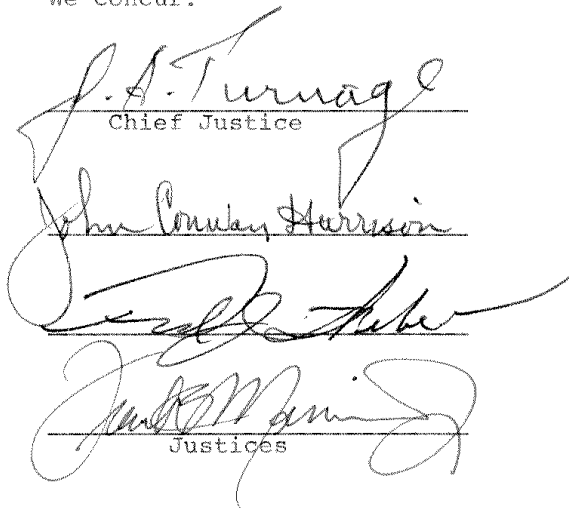 We concur:
J. A. Turnage
Chief Justice
John Conway Harrison
Justices